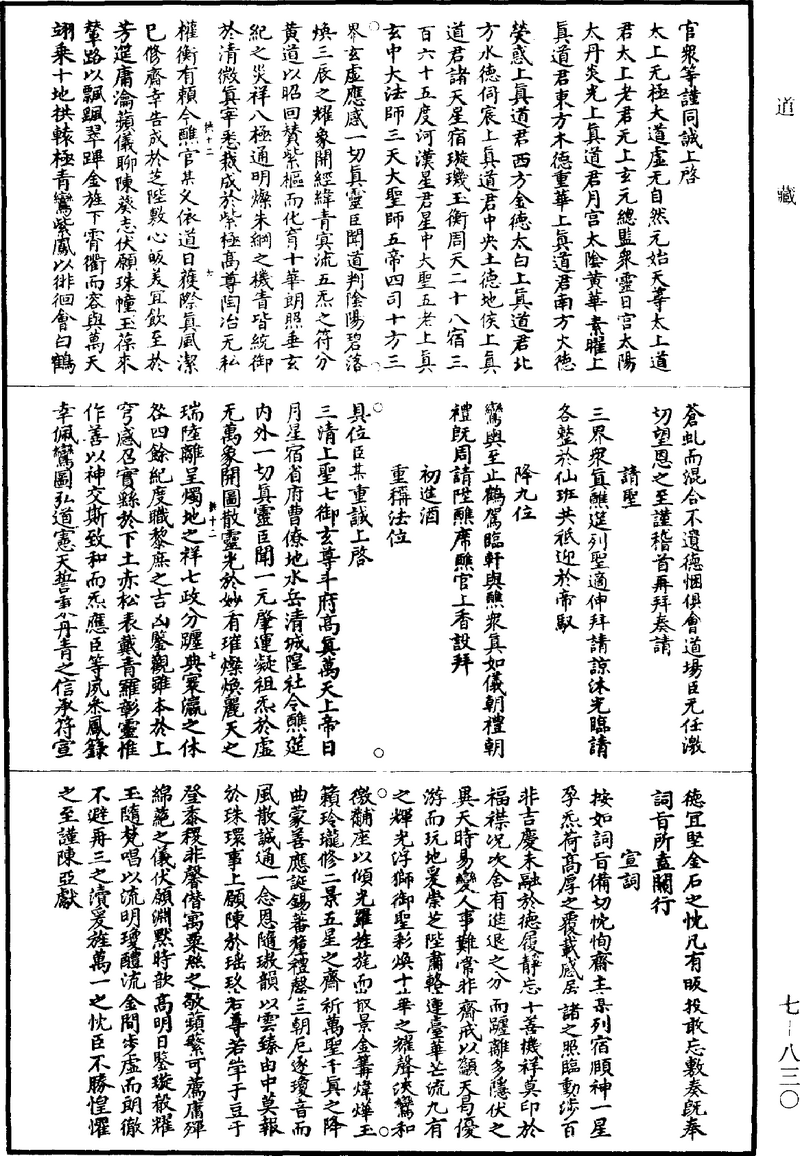 道藏
官衆等謹同誠上啓
太上无極大道虛无自然元始天等太上道
君太上老君元上玄元總監衆靈日宫太陽
太丹炎光上真道君月宫太陰黄華素曜上
真道君東方木德重華上真道君南方火德
熒惑上真道君西方金德太白上真道君北
方水德伺宸上真道君中央土德地侯上真
道君諸天星宿璇璣玉衡周天二十八宿三
百六十五度河漢星君星中大聖五老上真
玄中大法師三天大聖師五帝四司十方三
界玄虛應感一切真靈臣聞道判陰陽碧落
煥三辰之耀象開經緯青冥流五炁之符分
黄道以昭回賛紫樞而化育十華朗照垂玄
紀之災祥八極通明燦朱綱之機青皆統御
於清微真宰悉裁成於紫極高尊陶冶无私
權衡有頼今醮官某乂依道日蔭際真風潔
已修齋幸告成於芝陛敷心皈美宜飲至於
芳筵庸瀹蘋儀聊陳葵志伏願珠幢玉葆來
輦路以飄颻翠蹕金旌下霄衢而容與萬天
翊乗十地拱轅極青鸞紫鳳以徘徊會白鶴
蒼虬而混合不遺德悃俱會道場臣无任激
切望恩之至謹稽首再拜奏請
請聖
三界衆真醮筵列聖適伸拜請諒沐光臨請
各整於仙班共祇迎於帝馭
降九位
鸞輿至止鶴駕臨軒與醮衆真如儀朝禮朝
禮旣周請陞醮席醮官上香設拜
初進酒
重稱法位
具位臣某重誠上啓
三清上聖七御玄尊斗府高真萬天上帝日
月星宿省府曹僚地水岳清城隍社令醮筵
内外一切真靈臣聞一元肇運凝祖炁於虛
无萬象開圖散靈光於妙有璀璨煥麗天之
瑞陸離呈燭地之祥七政分躔典寒瀛之休
咎四餘紀度職黎庶之吉凶鑒觀雖本於上
穹感召實縣於下土赤松表戴青羅彰靈惟
作善以神交斯致和而炁應臣等夙叅鳳錄
幸佩鸞圖弘道憲天誓丹青之信承符宣
德宜堅金石之忱凡有皈投敢忘敷奏旣奉
詞旨所宜關行
宣詞
按如詞旨備切忱恂齋主某列宿頤神一星
孕炁荷高厚之覆載感居諸之照臨動渉百
非吉慶未融於德履靜忘十善機祥莫印於
福襟况次舍有進退之分而躔離多隱伏之
異天時易變人事難常非齋戒以籲天曷優
游而玩地爰崇芝陛肅輅連臺華芒流九有
之輝光浮獅御聖彩煥十華之耀聲浹鸞和
徼黼座以傾光羅旌旄而馭景金篝煒燁玉
籟玲瓏修二景五星之齋祈萬聖千真之降
曲蒙善應誕錫蕃釐禮罄三朝卮逐瓊音而
風散誠通一念恩隨璈韻以雲臻由中莫報
於珠環事上願陳於瑶玖若尊若竿于豆于
登黍稷非馨借寓粟絲之敬蘋蘩可薦庸殫
綿蕝之儀伏願淵默時歆高明日鑒璇殽耀
玉隨梵唱以流明瓊醴流金間歩虛而朗徹
不避再三之瀆爰旌萬一之忱臣不勝惶懼
之至謹陳亞獻
七-八三〇